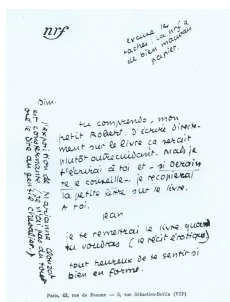 nrf
excuse les
taches : la nrf a
de bien mauvais
papier.
Dim.
tu comprends, mon
petit Robert. D'écrire directe-
ment sur le livre ça serait
plutôt outrecuidant. Mais je
t'écrirai à toi et - si Derain
te le conseille -, je recopierai
la petite lettre sur le livre.
A toi.
Jean
je te remettrai le livre quand
tu voudras (le récit érotique)
tout heureux de te sentir si
bien en forme.
l'exposition de Marianne
est
Paris, 43, rue de Beaune — 5, rue Sébastien-Bottin (VIIe)